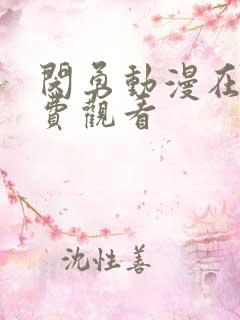 閃勇動漫在
費觀看
沈性善